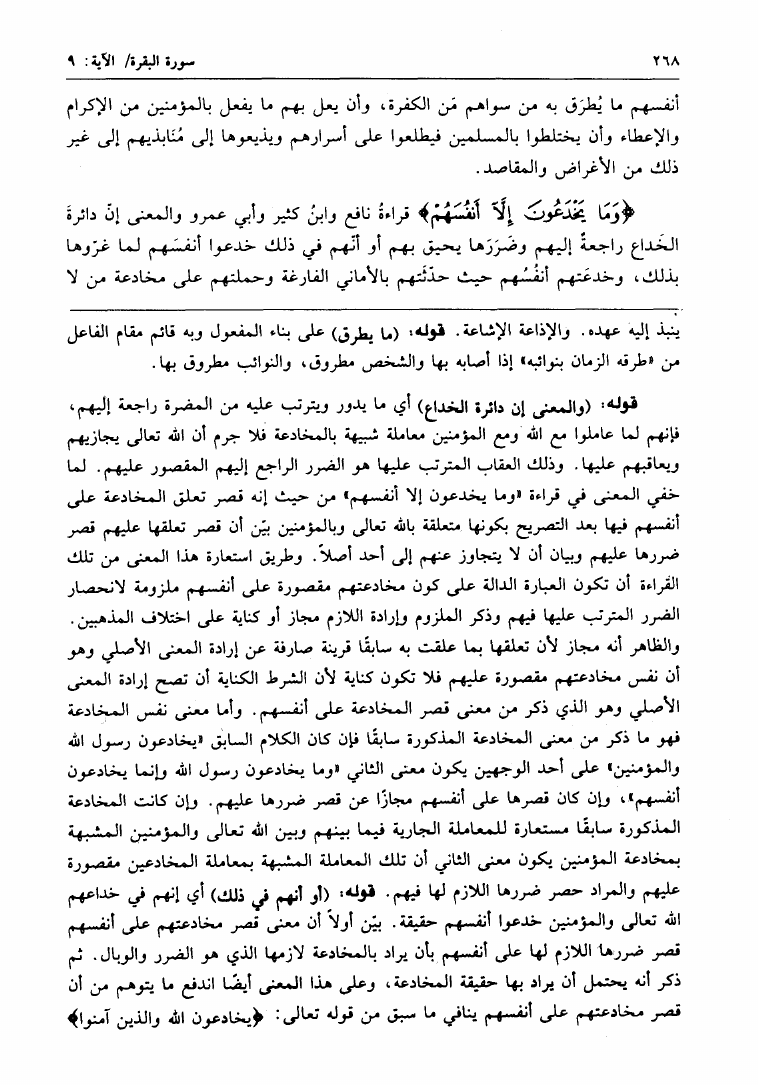 ٢٦٨ سورة البقرة/ الآية: ٩
أنفسهم ما يُطرَق به من سواهم مَن الكفرة، وأن يعل بهم ما يفعل بالمؤمنين من الإكرام
والإعطاء وأن يختلطوا بالمسلمين فيطلعوا على أسرارهم ويذيعوها إلى مُنَابذيهم إلى غير
ذلك من الأغراض والمقاصد.
﴿وَمَا يَخْدَعُونَ إِلَّا أَنفُسَهُمْ﴾ قراءةُ نافع وابنُ كثير وأبي عمرو والمعنى إنّ دائرةَ
الخَداع راجعةٌ إليهم وضَرَرَها يحيق بهم أو أنّهم في ذلك خدعوا أنفسَهم لما غرّوها
بذلك، وخدعَتهم أنفُسُهم حيث حدّثَتهم بالأماني الفارغة وحملتهم على مخادعة من لا
ينبذ إليه عهده. والإذاعة الإشاعة. قوله: (ما يطرق) على بناء المفعول وبه قائم مقام الفاعل
من «طرقه الزمان بنوائبه» إذا أصابه بها والشخص مطروق، والنوائب مطروق بها.
قوله: (والمعنى إن دائرة الخداع) أي ما يدور ويترتب عليه من المضرة راجعة إليهم،
فإنهم لما عاملوا مع الله ومع المؤمنين معاملة شبيهة بالمخادعة فلا جرم أن الله تعالى يجازيهم
ويعاقبهم عليها. وذلك العقاب المترتب عليها هو الضرر الراجع إليهم المقصور عليهم. لما
خفي المعنى في قراءة «وما يخدعون إلا أنفسهم» من حيث إنه قصر تعلق المخادعة على
أنفسهم فيها بعد التصريح بكونها متعلقة بالله تعالى وبالمؤمنين بيّن أن قصر تعلقها عليهم قصر
ضررها عليهم وبيان أن لا يتجاوز عنهم إلى أحد أصلاً. وطريق استعارة هذا المعنى من تلك
القراءة أن تكون العبارة الدالة على كون مخادعتهم مقصورة على أنفسهم ملزومة لانحصار
الضرر المترتب عليها فيهم وذكر الملزوم وإرادة اللازم مجاز أو كناية على اختلاف المذهبين.
والظاهر أنه مجاز لأن تعلقها بما علقت به سابقًا قرينة صارفة عن إرادة المعنى الأصلي وهو
أن نفس مخادعتهم مقصورة عليهم فلا تكون كناية لأن الشرط الكناية أن تصح إرادة المعنى
الأصلي وهو الذي ذكر من معنى قصر المخادعة على أنفسهم. وأما معنى نفس المخادعة
فهو ما ذكر من معنى المخادعة المذكورة سابقًا فإن كان الكلام السابق «يخادعون رسول الله
والمؤمنين» على أحد الوجهين يكون معنى الثاني «وما يخادعون رسول الله وإنما يخادعون
أنفسهم»، وإن كان قصرها على أنفسهم مجازًا عن قصر ضررها عليهم. وإن كانت المخادعة
المذكورة سابقًا مستعارة للمعاملة الجارية فيما بينهم وبين الله تعالى والمؤمنين المشبهة
بمخادعة المؤمنين يكون معنى الثاني أن تلك المعاملة المشبهة بمعاملة المخادعين مقصورة
عليهم والمراد حصر ضررها اللازم لها فيهم. قوله: (أو أنهم في ذلك) أي إنهم في خداعهم
الله تعالى والمؤمنين خدعوا أنفسهم حقيقة. بيّن أولاً أن معنى قصر مخادعتهم على أنفسهم
قصر ضررها اللازم لها على أنفسهم بأن يراد بالمخادعة لازمها الذي هو الضرر والوبال. ثم
ذكر أنه يحتمل أن يراد بها حقيقة المخادعة، وعلى هذا المعنى أيضًا اندفع ما يتوهم من أن
قصر مخادعتهم على أنفسهم ينافي ما سبق من قوله تعالى: ﴿يخادعون الله والذين آمنوا﴾